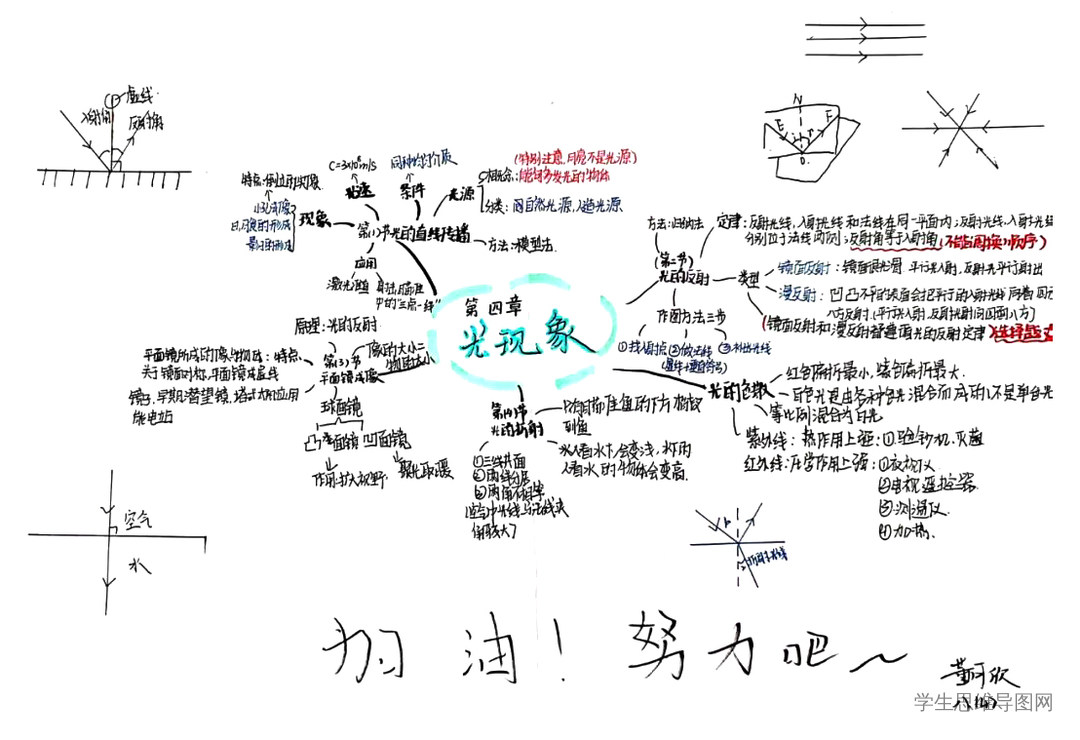 虚线
入射角
反射角
N
E
F
i
r
O
第四章
光现象
第(1)节光的直线传播
光速
C=3×10⁸m/s
条件
同种均匀介质
光源
(特别注意,月亮不是光源)
概念:能够多发光的物体
分类:
自然光源,人造光源
方法:模型法
现象
特点:倒立的实像
小孔成像
日,月食的形成
影子的形成
应用
激光准直
射击瞄准
中的"三点一线"
(第二节)
光的反射
方法:归纳法
定律:反射光线,入射光线和法线在同一平面内;反射光线,入射光线
分别位于法线两侧;反射角等于入射角(不能调换顺序)
类型
镜面反射:镜面很光滑.平行光入射,反射光平行射出
漫反射:凹凸不平的表面会把平行的入射光线向着四
八方反射.(平行光入射,反射光射向四面八方)
(镜面反射和漫反射都遵循光的反射定律)
作图方法三步
①找入射点
②做法线
③补出光线
第(3)节
平面镜成像
原理:光的反射
像的大小=
物的大小
平面镜所成的像与物到
特点:
关于镜面对称,平面镜成虚像
镜子,早期潜望镜,塔式太阳能应用
能电站
球面镜
凸面镜
凹面镜
作用:扩大视野
聚光取暖
第(4)节
光的折射
①三线共面
②两线分居
③两角不相等
空气中光线与法线夹
角较大了
从人看水下会变浅,水内
人看水的物体会变高.
光的色散
红色偏折最小,紫色偏折最大.
白色光是由各种色光混合而成的(不是单色光
等比例混合为白光
紫外线:热作用上强:①验钞机.灭菌
红外线:化学作用上强:①夜视仪
②电视遥控器
③测温仪
④加热.
空气
水
加油!努力吧~
学生思维导图网